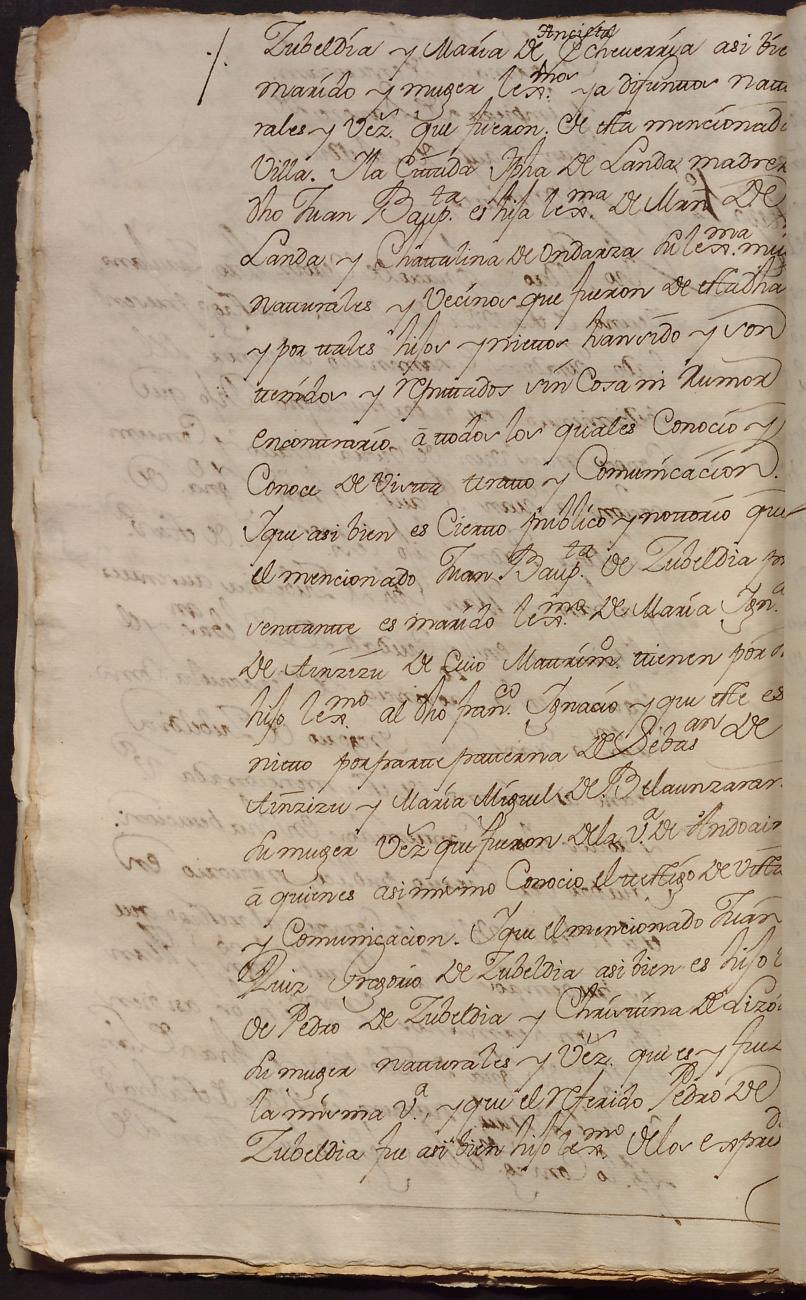 Ancieta
Zubeldia y María de Echeverría asi bie
marido y muger lexmos. ya difuntos natu
rales y Vez. que fueron. de esta mencionada
Villa. Yla Cittada Jpha de Landa madre
dho Juan Baupta. es hija lexma. de Marn de
Landa y Chattalina de Ondarza su lexma. mu
natturales y Vecinos que fueron de esta dha
y por ttales hijos y niettos han sido y son
ttenidos y reputtados sin Cosa ni Rumor
en conttrario. à ttodos los quales Conocio y
Conoce de Vistta tratto y Comunicacion.
Yque asi bien es Cierto publico y nottorio que
el mencionado Juan Baupta. de Zubeldia pr
sentante es marido lexmo. de María Igna.
de Ainzizu de Cuio Mattrimo. ttienen por
hijo lexmo. al dho Franco. Ignacio y que este es
nietto por partte patterna de Sebasan de
Ainzizu y María Miguel de Belaunzaran
su muger Vez que fueron dela Va. de Andoain
à quienes asi mismo Conocio el testigo de Vista
y Comunicacion. Yque el mencionado Juan
Ruiz Gregorio de Zubeldia asi bien es hijo
de Pedro de Zubeldia y Christtina de Lizo
su muger natturales y Vez. que es y fue
la misma Va., y que el referido Pedro de
Zubeldia fue asi bien hijo lexmo. delos expresad